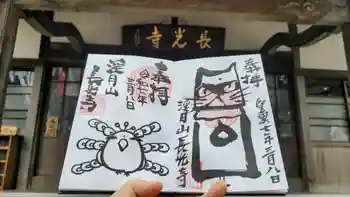 寺光長
奉拝
令和七年
三月八日
望月山
長光寺
奉拝
令和七年三月八日
望月山長光寺